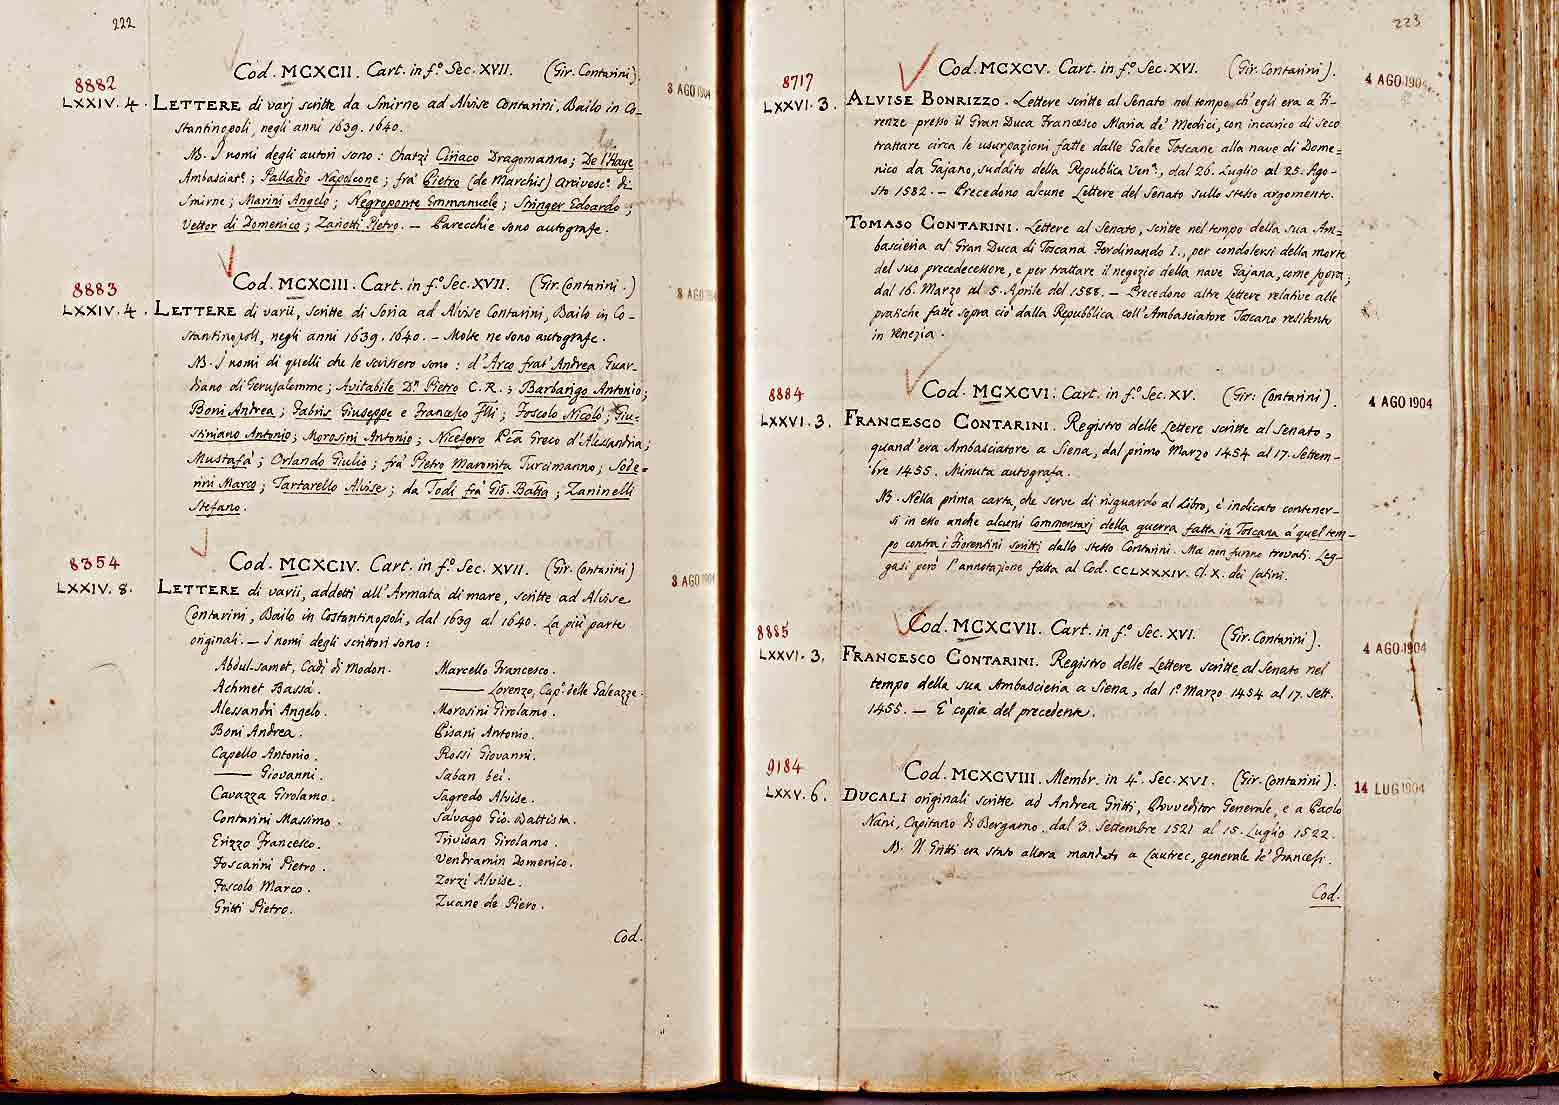 222
Cod. MCXCII. Cart. in fº. Sec. XVII. (Gir. Contarini).
8882
3 AGO 1904
LXXIV. 4. LETTERE di varj scritte da Smirne ad Alvise Contarini, Bailo in Co-
stantinopoli, negli anni 1639. 1640.
NB. I nomi degli autori sono: Chatzì Ciriaco Dragomanno; De l'Haye
Ambasciatº.; Palladio Napoleone; fra Pietro (de Marchis) Arcivescº. di
Smirne; Marini Angelo; Negroponte Emmanuele; Stringer Edoardo;
Vettor di Domenico; Zanotti Pietro. — Parecchie sono autografe.
Cod. MCXCIII. Cart. in fº. Sec. XVII. (Gir. Contarini.)
8883
8 AGO 1904
LXXIV. 4. LETTERE di varii, scritte di Soria ad Alvise Contarini, Bailo in Co-
stantinopoli, negli anni 1639. 1640. — Molte ne sono autografe.
NB. I nomi di quelli che le scrissero sono: d'Arco frat' Andrea Guar-
diano di Gerusalemme; Avitabile Dn. Pietro C. R.; Barbarigo Antonio;
Boni Andrea; Fabris Giuseppe e Francesco flli; Foscolo Nicolò; Giu-
stiniano Antonio; Morosini Antonio; Niceforo Pca Greco d'Alessandria;
Mustafà; Orlando Giulio; frà Pietro Maronita Turcimanno; Sode=
rini Marco; Tartarello Alvise; da Todi frà Gio. Batta; Zaninelli
Stefano.
Cod. MCXCIV. Cart. in fº. Sec. XVII. (Gir. Contarini)
8354
3 AGO 1904
LXXIV. 8. LETTERE di varii, addetti all'Armata di mare, scritte ad Alvise
Contarini, Bailo in Costantinopoli, dal 1639 al 1640. La più parte
originali. — I nomi degli scrittori sono:
Abdul-samet, Cadì di Modon.
Achmet Bassà.
Alessandri Angelo.
Boni Andrea.
Capello Antonio.
—— Giovanni.
Cavazza Girolamo.
Contarini Massimo.
Erizzo Francesco.
Foscarini Pietro.
Foscolo Marco.
Gritti Pietro.
Marcello Francesco.
—— Lorenzo, Capº. delle Galeazze.
Morosini Girolamo.
Pisani Antonio.
Rossi Giovanni.
Saban bei.
Sagredo Alvise.
Salvago Gio. Battista.
Trivisan Girolamo.
Vendramin Domenico.
Zorzi Alvise.
Zuane de Piero.
Cod.
223
Cod. MCXCV. Cart. in fº. Sec. XVI. (Gir. Contarini).
8717
4 AGO 1904
LXXVI. 3. ALVISE BONRIZZO. Lettere scritte al Senato nel tempo ch'egli era a Fi-
renze presso il Gran Duca Francesco Maria de' Medici, con incarico di seco
trattare circa le usurpazioni fatte dalle Galee Toscane alla nave di Dome=
nico da Gajano, suddito della Repubblica Venª., dal 26. Luglio al 25. Ago-
sto 1582. — Precedono alcune Lettere del Senato sullo stesso argomento.
TOMASO CONTARINI. Lettere al Senato, scritte nel tempo della sua Am=
bascieria al Gran Duca di Toscana Ferdinando I., per condolersi della morte
del suo predecessore, e per trattare il negozio della nave Gajana, come sopra;
dal 16. Marzo al 5. Aprile del 1588. — Precedono altre Lettere relative alle
pratiche fatte sopra ciò dalla Repubblica coll'Ambasciatore Toscano residente
in Venezia.
Cod. MCXCVI. Cart. in fº. Sec. XV. (Gir: Contarini).
8884
4 AGO 1904
LXXVI. 3. FRANCESCO CONTARINI. Registro delle Lettere scritte al Senato,
quand'era Ambasciatore a Siena, dal primo Marzo 1454 al 17. Settem-
bre 1455. Minuta autografa.
NB. Nella prima carta, che serve di risguardo al Libro, è indicato contener-
si in esso anche alcuni Commentarj della guerra fatta in Toscana a quel tem-
po contra i Fiorentini scritti dallo stesso Contarini. Ma non furono trovati. Leg-
gasi però l'annotazione fatta al Cod. CCLXXXIV. Cl. X. dei Latini.
Cod. MCXCVII. Cart. in fº. Sec. XVI. (Gir. Contarini).
8885
4 AGO 1904
LXXVI. 3. FRANCESCO CONTARINI. Registro delle Lettere scritte al Senato nel
tempo della sua Ambascieria a Siena, dal 1º. Marzo 1454 al 17. Sett.
1455. — È copia del precedente.
Cod. MCXCVIII. Membr. in 4º. Sec. XVI. (Gir. Contarini).
9184
14 LUG 1904
LXXV. 6. DUCALI originali scritte ad Andrea Gritti, Provveditor Generale, e a Paolo
Nani, Capitano di Bergamo, dal 3. Settembre 1521 al 15. Luglio 1522.
NB. Il Gritti era stato allora mandato a Lautrec, generale de' Francesi.
Cod.